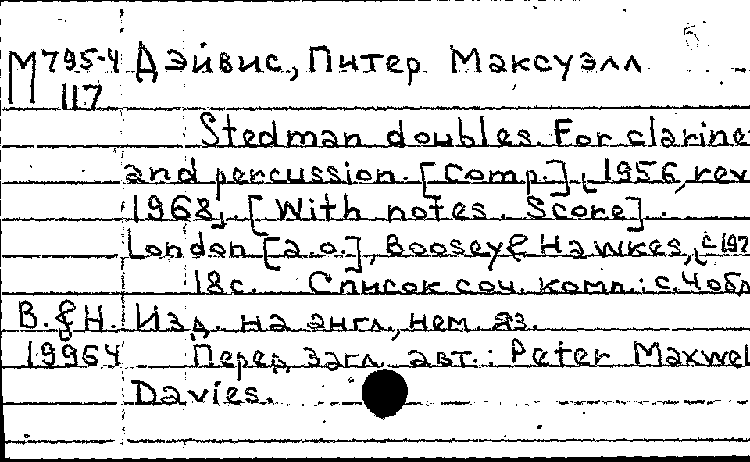 М795-4 Дэйвис, Питер Максуэлл
117
Stedman doubles. For clarine
and percussion. [Comp.], [1956, rev
1968]. [With notes. Score].
London [a.o.], Boosey & Hawkes, [с197
18с. Список соч. комп.: с.4 обл
B. & H. Изд. на англ., нем. яз.
19964 Перед загл. авт.: Peter Maxwel
Davies.